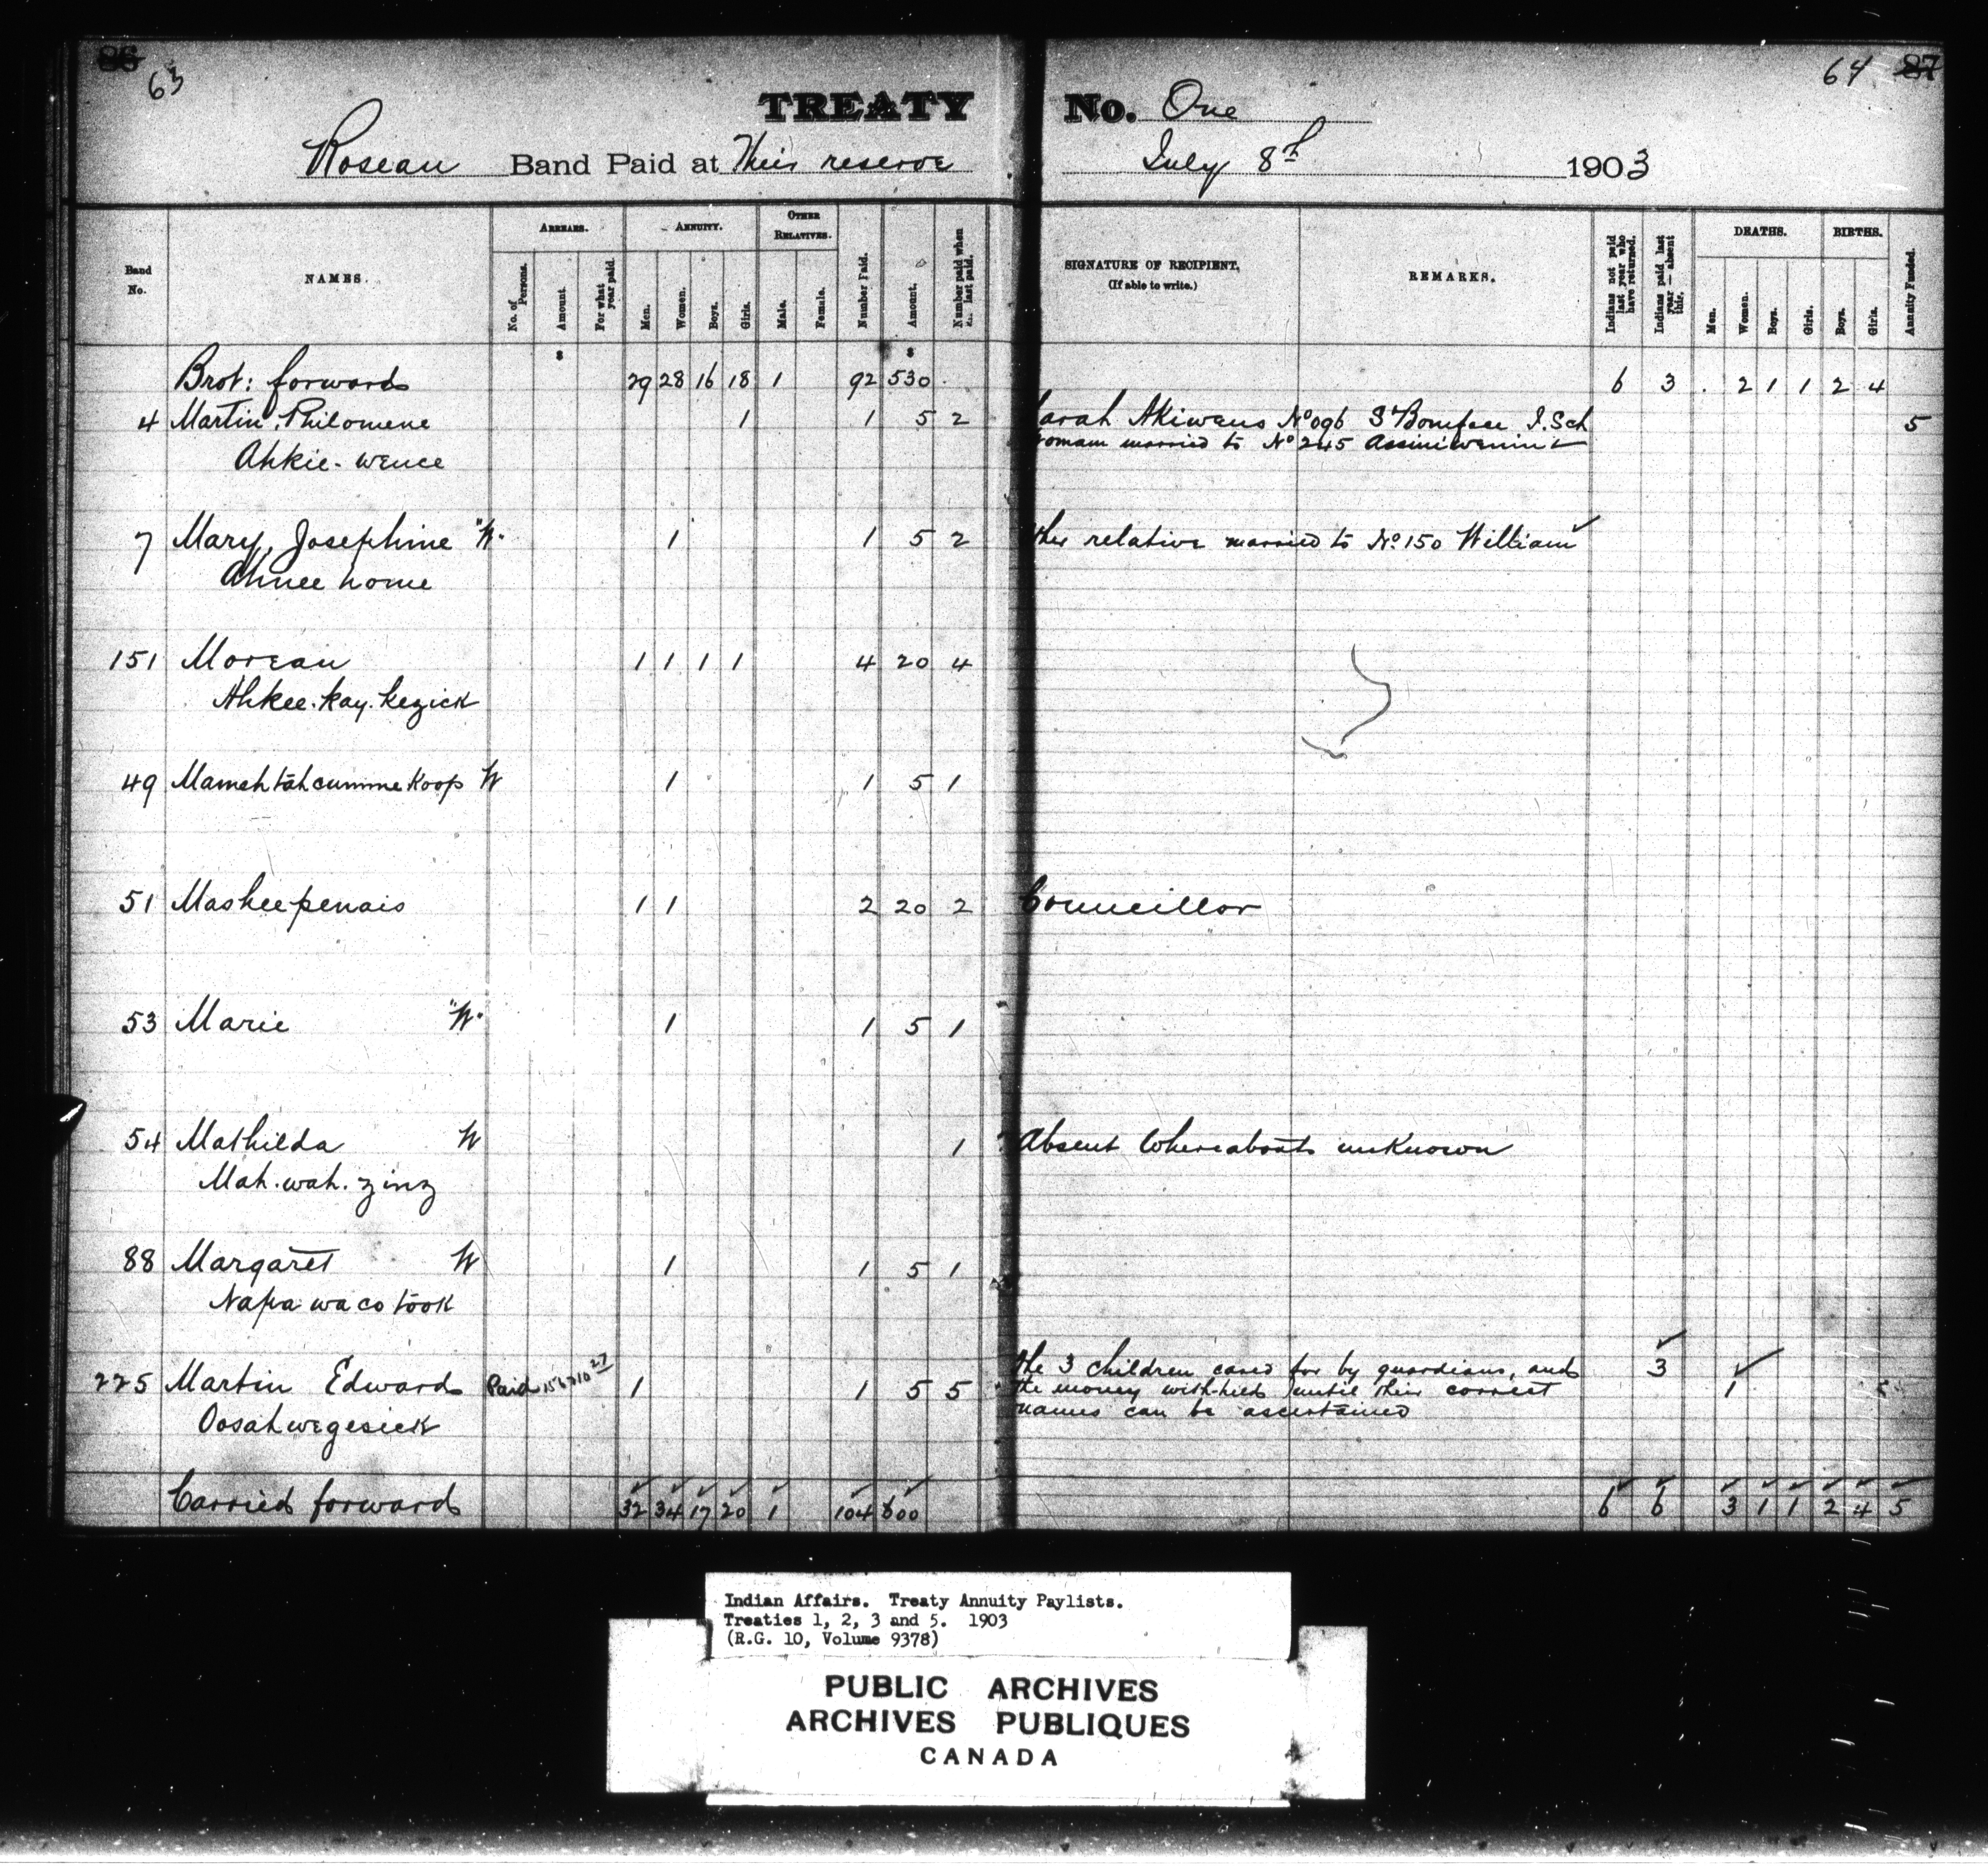 86 63 64 87
TREATY No. One
Roseau Band Paid at Their reserve July 8th 1903
Band No.
NAMES.
ARREARS.
No. of Persons.
Amount.
For what year paid.
ANNUITY.
Men.
Women.
Boys.
Girls.
OTHER RELATIVES.
Male.
Female.
Number Paid.
Amount.
Number paid when last paid.
SIGNATURE OF RECIPIENT,
(If able to write.)
REMARKS.
Indians not paid last year who have returned.
Indians paid last year — absent this.
DEATHS.
Men.
Women.
Boys.
Girls.
BIRTHS.
Boys.
Girls.
Annuity Funded.
Brot: forwards 29 28 16 18 1 92 530 6 3 2 1 1 2 4
4 Martin, Philomene 1 1 5 2 Sarah Akiwens No 096 St Boniface I. Sch 5
Woman married to No 245 Assiniwenin
Ahkie-wence
7 Mary, Josephine "W" 1 1 5 2 Other relative married to No 150 William
Ahnee home
151 Moreau 1 1 1 1 4 20 4
Ahkee.kay.kezick
49 Mamehtahcummekoop W 1 1 5 1
51 Maskeepenais 1 1 2 20 2 Councillor
53 Marie "W" 1 1 5 1
54 Mathilda W 1 Absent Whereabouts unknown
Mah.wah.zinz
88 Margaret W 1 1 5 1
Napawacotook
225 Martin Edward Paid 1 1 5 5 the 3 children cared for by guardians, and 3
the money with-held until their correct 1
names can be ascertained
Oosahwegesick
Carried forward 32 34 17 20 1 104 600 6 6 3 1 1 2 4 5
Indian Affairs. Treaty Annuity Paylists.
Treaties 1, 2, 3 and 5. 1903
(R.G. 10, Volume 9378)
PUBLIC ARCHIVES
ARCHIVES PUBLIQUES
CANADA